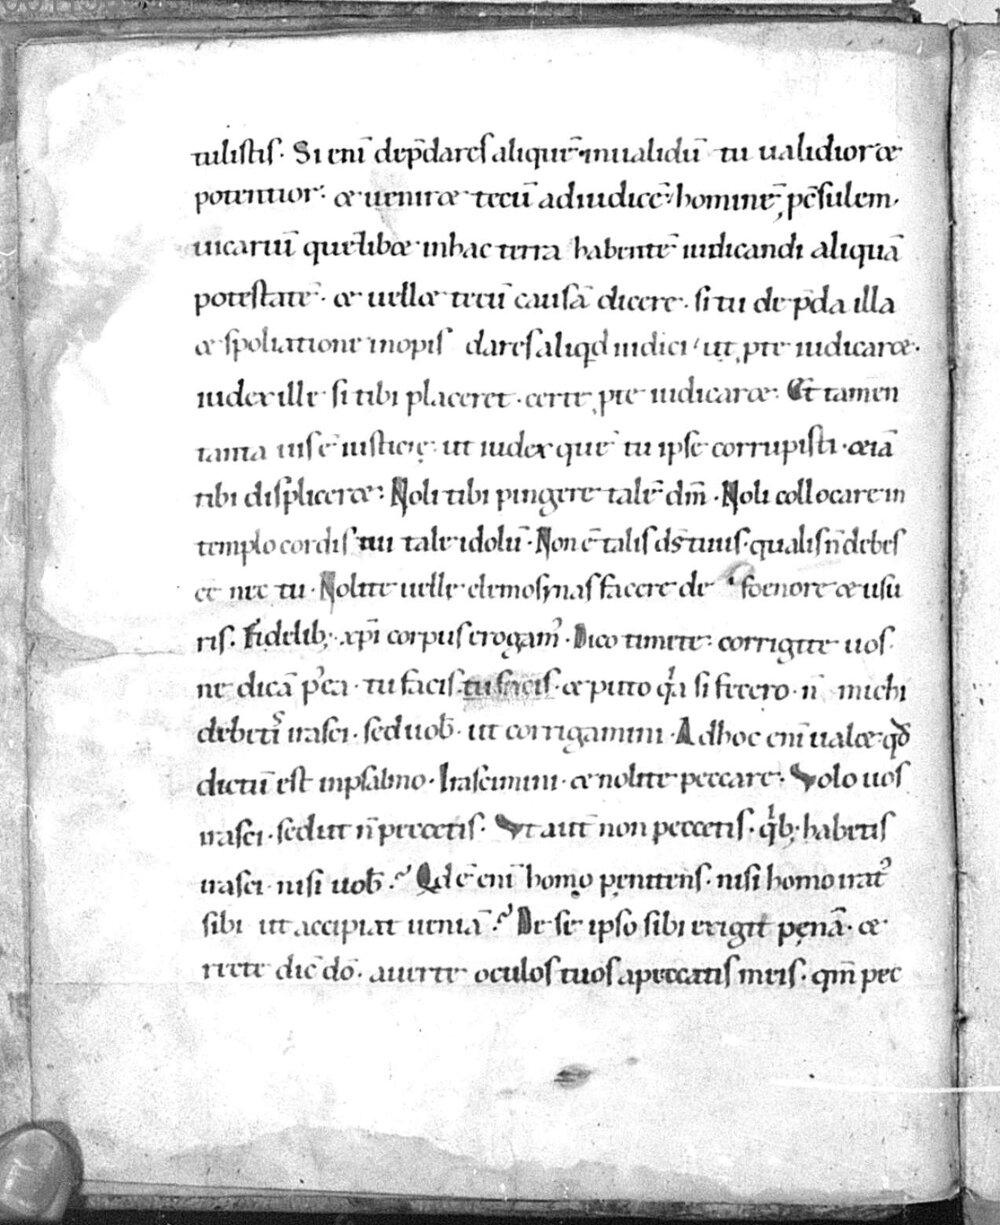 tulistis. Si enī dep̄dares aliquē inualidū tu ualidior &
potentior. & uenir& tecū ad iudicē. hominē, p̄c̄sulem.
uicariū quēlib& in hac terra habentē iudicandi aliquā
potestatē. & uell& tecū causā dicere. si tu de p̄da illa
& spoliatione inopis dares aliqd iudici, ut ꝓ te iudicar&.
iudex ille si tibi placeret. certe ꝓ te iudicar&. Et tamen
tanta uis ē iusticię. ut iudex quē tu ipse corrupisti. &iā
tibi displicer&. Noli tibi pingere talē dm̄. Noli collocare in
templo cordis tui tale idolū. Non ē talis ds̄ tuus. qualis n̄ debes
eē nec tu. Nolite uelle elemosynas facere de foenore & usu
ris. Fidelib; xp̄i corpus erogamꝰ. Dico timete. corrigite uos.
ne dicā p̄ea. tu facis. tu facis. & puto qa si fecero. n̄ michi
debetis irasci. sed uob̄. ut corrigamini. Ad hoc enī ual& qd
dictū est in psalmo. Irascimini. & nolite peccare. Volo uos
irasci. sed ut n̄ peccetis. Vt aut̄ non peccetis. qb; habetis
irasci. nisi uob̄? Qd ē enī homo penitens. nisi homo iratꝰ
sibi ut accipiat ueniā? De se ipso sibi exigit pęnā. &
recte dic̄ dō. auerte oculos tuos a peccatis meis. qm̄ pec